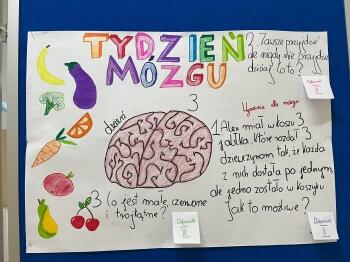 TYDZIEŃ
MÓZGU
2. Zawsze przyjdzie
ale nigdy nie przyjdzie
dzisiaj. Co to?
Odpowiedź
II
Ćwiczenia dla mózgu
dzień 3
1. Alex miał w koszu 3
jabłka, które rozdał 3
dziewczynom tak, że każda
z nich dostała po jednym,
ale jedno zostało w koszyku
Jak to możliwe?
3 Co jest małe, czerwone
i trójkątne?
Odpowiedź
III
Odpowiedź
I